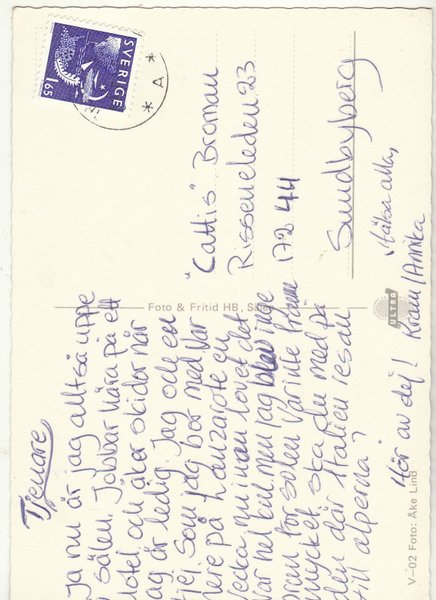 SVERIGE
1.65
* A *
Tjenare
ja nu är jag alltså uppe
sälen. Jobbar på ett
hotel och åker skidor när
jag är ledig. Jag och en
tjej som jag bor med var
nere på Lanzarote en
vecka nu innan lovet. Det
var kul men jag blev inge
för solen var inte framme
mycket. Ska du med på
den där Italien resan
till alperna?
Hör av dej! Kram/Annika
Hälsa alla,
"Cattis" Broman
Rissneleden 23
172 44
Sundbyberg
Foto & Fritid HB, Sälen
ULTRA
V-02 Foto: Åke Lind